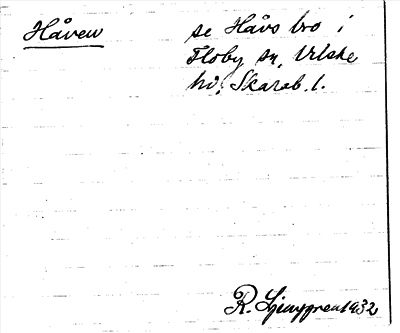 Håven
se Håvs bro i
Floby sn, Vilske
hd, Skarab. l.
R. Ljunggren 1932